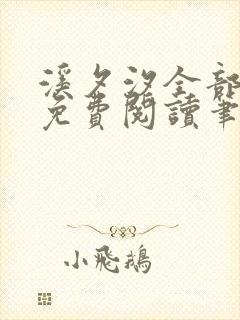 溪夕汐全部
免費閱讀筆
小飛鵝